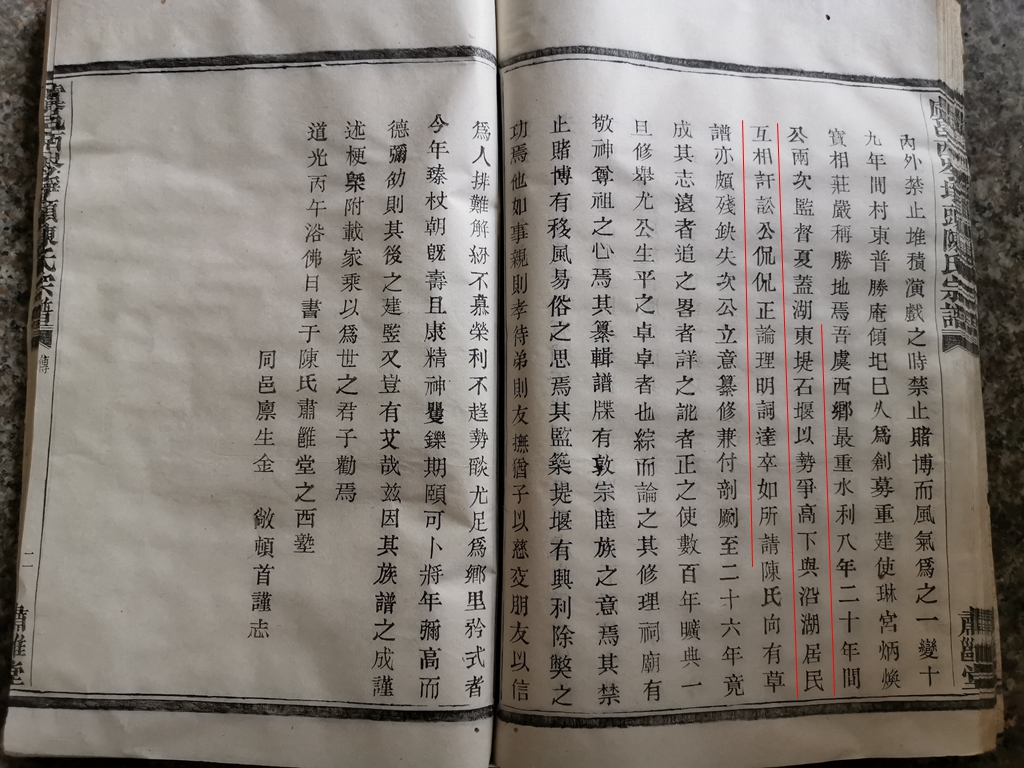 內外禁止堆積演戲之時禁止賭博而風氣爲之一變十
九年間村東普勝庵傾圯巳久爲創募重建使琳宮炳煥
寳相莊嚴稱勝地焉吾虞西鄉最重水利八年二十年間
公兩次監督夏蓋湖東堤石堰以勢爭高下與沿湖居民
互相訐訟公侃侃正論理明詞達卒如所請陳氏向有草
譜亦頗殘鈌失次公立意纂修兼付剞劂至二十六年竟
成其志遠者追之畧者詳之訛者正之使數百年曠典一
旦修舉尤公生平之卓卓者也綜而論之其修理祠廟有
敬神尊祖之心焉其纂輯譜牒有敦宗睦族之意焉其禁
止賭博有移風易俗之思焉其監築堤堰有興利除獘之
功焉他如事親則孝待弟則友撫猶子以慈交朋友以信
爲人排難解紛不慕榮利不趋勢燄尤足爲鄉里矜式者
今年臻杖朝旣壽且康精神矍鑠期頤可卜將年彌高而
德彌劭則其後之建竪又豈有艾哉兹因其族譜之成謹
述梗槩附載家乘以爲世之君子勸焉
道光丙午浴佛日書于陳氏肅雝堂之西塾
同邑廪生金 敞頓首謹志
陳氏宗譜
傳
二
肅雝堂